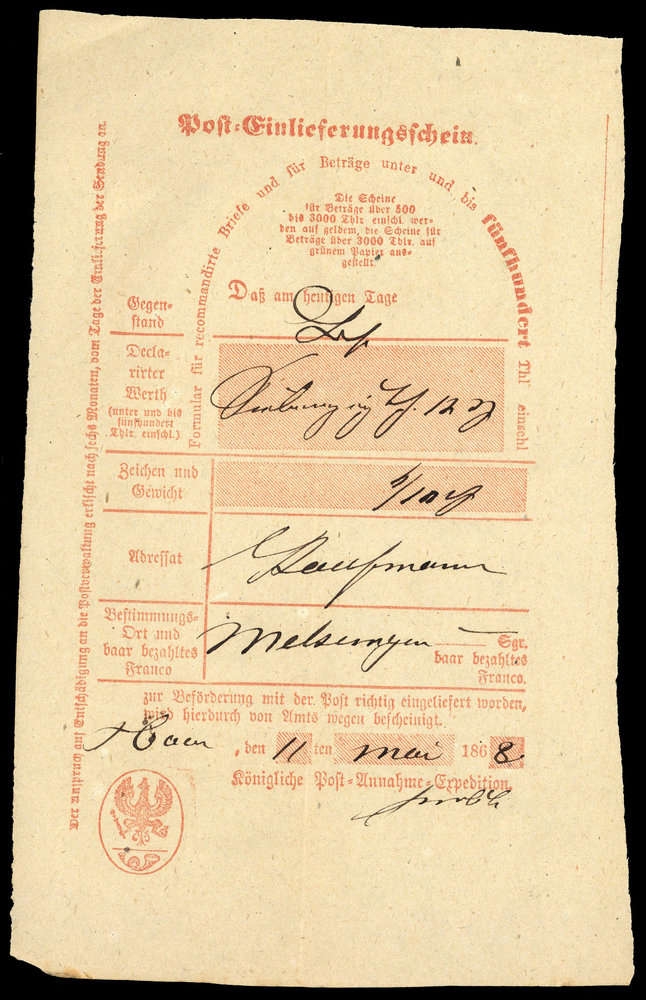 Post-Einlieferungsschein.
Formular für recommandirte Briefe und für Beträge unter und bis fünfhundert Thl einschl
Die Scheine
für Beträge über 500
bis 3000 Thlr. einschl. wer-
den auf gelbem, die Scheine für
Beträge über 3000 Thlr. auf
grünem Papier aus-
gestellt.
Daß am heutigen Tage
Gegen-
stand
Decla-
rirter
Werth
(unter und bis
fünfhundert
Thlr. einschl.)
12
Zeichen und
Gewicht
Adressat
Kaufmann
Bestimmungs-
Ort und
baar bezahltes
Franco
Melsungen
Sgr.
baar bezahltes
Franco.
zur Beförderung mit der Post richtig eingeliefert worden,
wird hierdurch von Amts wegen bescheinigt.
Haan, den 11 ten Mai 1868
Königliche Post-Annahme-Expedition.
Der Anspruch auf Entschädigung an die Postverwaltung erlischt nach sechs Monaten, vom Tage der Einlieferung der Sendung an.